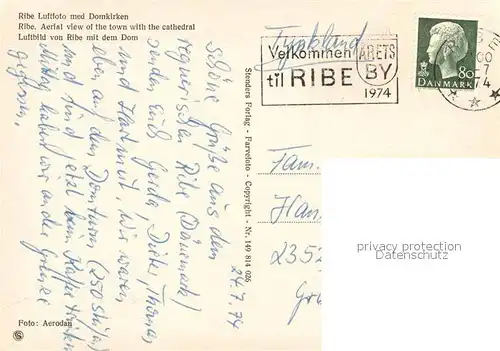 Ribe Luftfoto med Domkirken
Ribe. Aerial view of the town with the cathedral
Luftbild von Ribe mit dem Dom
24.7.74
Schöne Grüße aus dem
regnerischen Ribe (Dänemark)
senden Euch Gerda, Dieter, Thomas
und Hartmut. Wir waren
oben auf dem Domturm (250 Stufen)
und sind jetzt beim Kaffee trinken
Mittag haben wir an der Grenze
gegessen.
Foto: Aerodan
Stenders Forlag - Farvefoto - Copyright - Nr. 149 814 026
Tyskland
Velkommen
til RIBE
ÅRETS
BY
1974
80
DANMARK
Fam.
Han
2352
privacy protection
Watermark